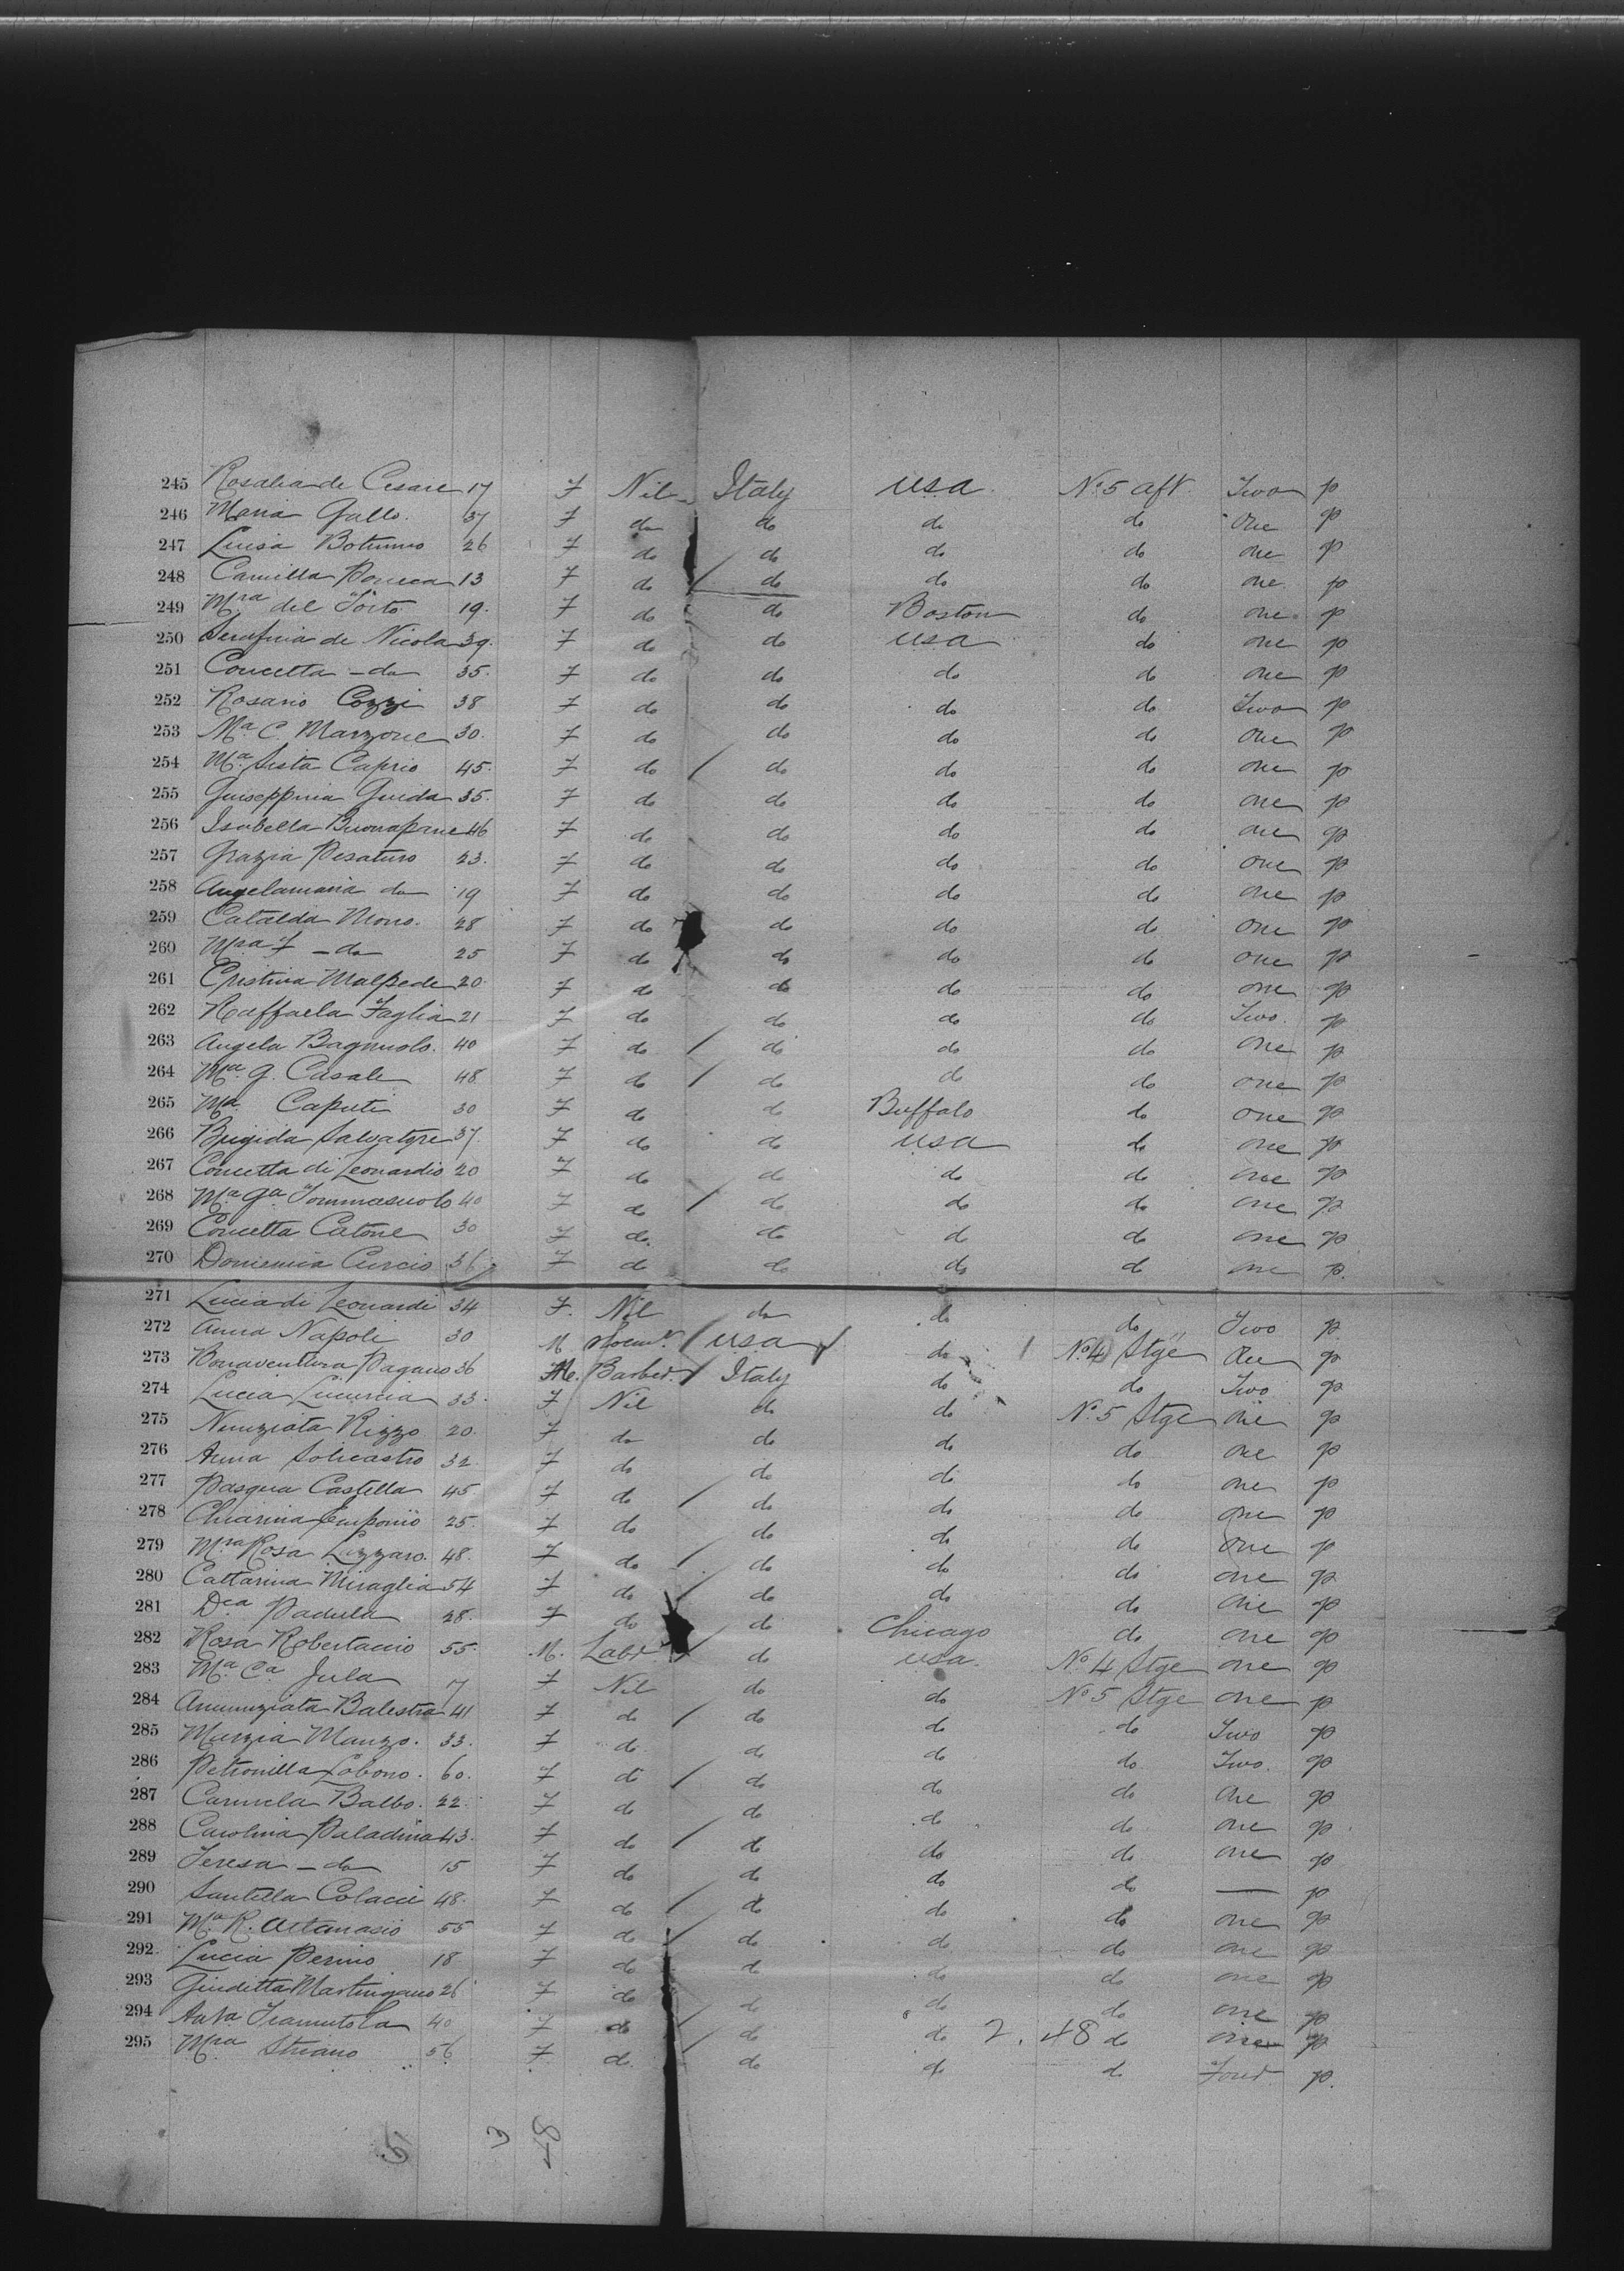 245 Rosalia de Cesare 17 F Nil Italy USA No 5 aft Two p
246 Maria Gallo. 37 F do do do do One p
247 Luisa 26 F do do do do one p
248 Camilla 13 F do / do do do one p
249 Mra del 19. F do do Boston do one p
250 Serafina de Nicola 39. F do do USA do one p
251 Concetta - do 35. F do do do do one p
252 Rosario Cozzi 38 F do do do do Two p
253 Ma C. Marzone 30. F do do do do one p
254 Ma Sista Caprio 45. F do / do do do one p
255 Guiseppina Guida 35. F do do do do one p
256 Isabella Buonapane 46 F do do do do one p
257 Grazia Pesaturo 23. F do do do do one p
258 Angelamaria do 19 F do do do do one p
259 Catalda Moro. 28 F do do do do one p
260 Mra F - do 25 F do do do do one p
261 Cristina Malpede 20 F do do do do one p
262 Raffaela Faglia 21 F do do do do Two. p
263 Angela Bagnuolo. 40 F do / do do do one p
264 Ma G. Casale 48 F do / do do do one p
265 Ma Caputi 30 F do do Buffalo do one p
266 Brigida Salvatore 37 F do do USA do one p
267 Concetta di Leonardio 20 F do do do do one p
268 Ma Ga Tommasuolo 40 F do / do do do one p
269 Concetta Catone 30 F do do do do one p
270 Domenica Curcio 36 F do do do do one p.
271 Lucia di Leonardi 34 F. Nil do do do Two p
272 Anna Napoli 30 M / USA do No 4 Stge One p
273 Bonaventura Pagano 36 M. Barber. / Italy do do Two p
274 Lucia 33. F Nil do do No 5 Stge one p
275 Nunziata Rizzo 20. F do do do do one p
276 Anna Solicastro 32 F do do do do one p
277 Pasqua Castella 45 F do / do do do one p
278 Chiarina 25. F do do do do one p
279 Mra Rosa Lazzaro. 48. F do / do do do one p
280 Cattarina Miraglia 54 F do / do do do one p
281 Dca Padula 28. F do do Chicago do one p
282 Rosa Robertaccio 55. M. Labr / do USA. No 4 Stge one p
283 Ma Ca Jula 17 F Nil do do No 5 Stge one p
284 Annunziata Balestra 41 F do / do do do Two p
285 Marzia Manzo. 33. F do do do do Two. p
286 Petronilla Lobono. 60. F do / do do do One p
287 Carmela Balbo. 22. F do do do do one p.
288 Carolina Paladina 43. F do / do do do one p
289 Teresa - do 15 F do do do do — p
290 Santella Colacci 48. F do / do do do one p
291 Ma R. Attanasio 55 F do / do do do one p
292 Lucia Perino 18 F do do do do one p
293 Giuditta Martingano 26 F do / do do do one p
294 Tramutola 40 F do / do do 2. 48 do one p
295 Mra Striano 56 F do. do do do Four p.